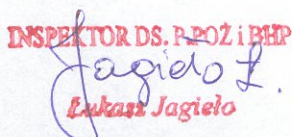 INSPEKTOR DS. P.POŻ i BHP
Jagieło Ł.
Łukasz Jagieło